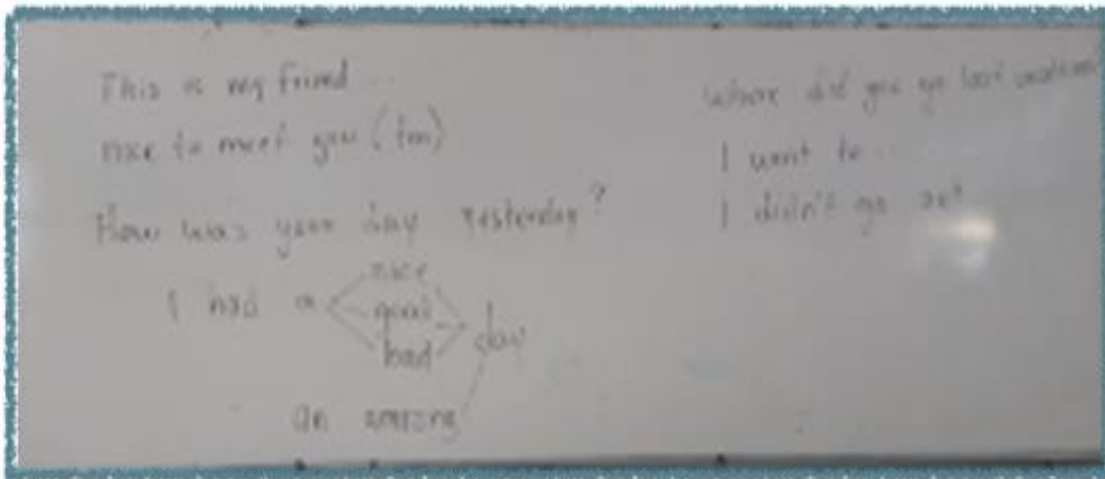 This is my friend ...
nice to meet you (too)
How was your day yesterday?
I had a
nice
good
bad
day
an amazing
Where did you go last weekend
I went to ...
I didn't go out